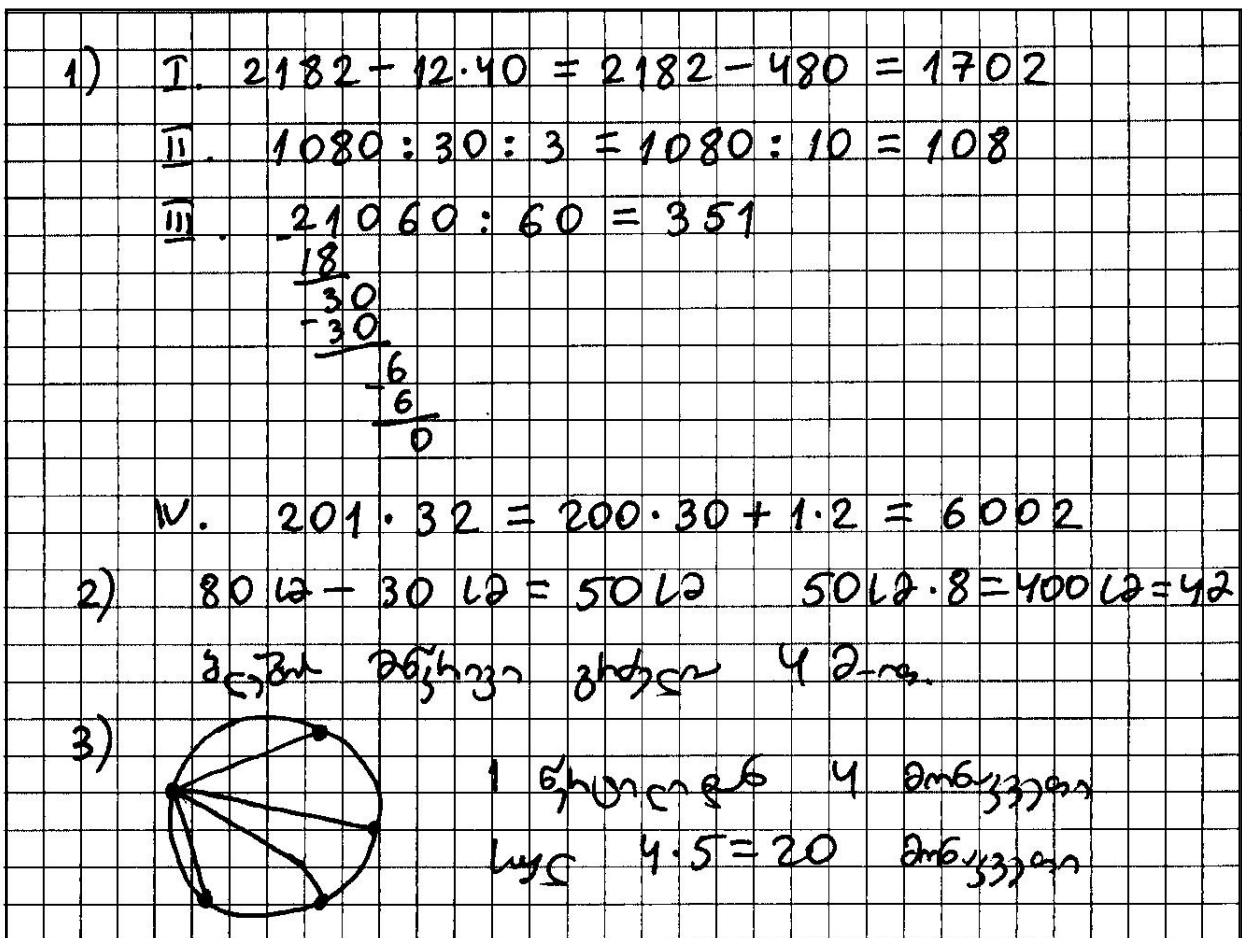 1) I. 2182 - 12·40 = 2182 - 480 = 1702
II. 1080 : 30 : 3 = 1080 : 10 = 108
III. 21060 : 60 = 351
18
30
-30
-6
6
0
IV. 201 · 32 = 200·30 + 1·2 = 6002
2) 80 სმ - 30 სმ = 50 სმ 50 სმ·8 = 400 სმ = 4მ
მწკრივი გრძელი 4 მ-ია.
3)
1 წერტილიდან 4 მონაკვეთი
სულ 4·5=20 მონაკვეთი